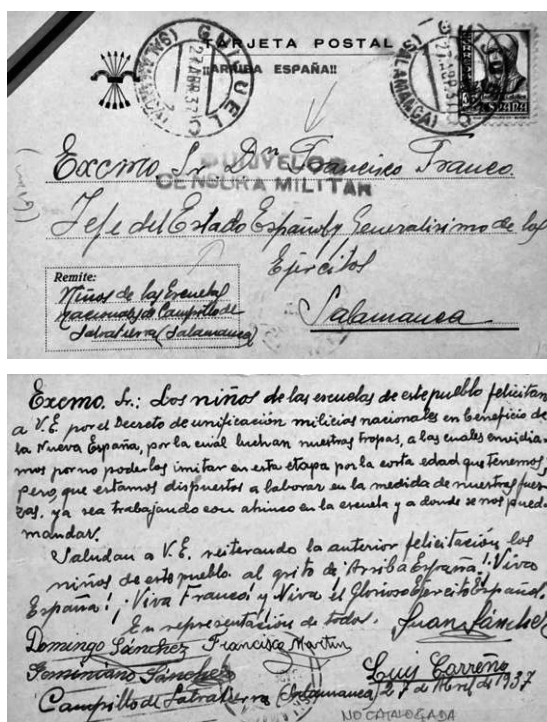 TARJETA POSTAL
¡¡ARRIBA ESPAÑA!!
GUIJUELO
27 ABR 37
(SALAMANCA)
27 ABR 37
(SALAMANCA)
Excmo Sr. Dn Francisco Franco.
CENSURA MILITAR
Jefe del Estado Español y Generalisimo de los
Ejércitos
Salamanca
Remite:
Niños de las Escuelas
nacionales de Campillo de
Salvatierra (Salamanca)
Excmo. Sr.: Los niños de las escuelas de este pueblo felicitan
a V.E. por el Decreto de unificación milicias nacionales en beneficio de
la Nueva España, por la cual luchan nuestras tropas, a las cuales envidia-
mos por no poderlas imitar en esta etapa por la corta edad que tenemos,
pero, que estamos dispuestos a laborar en la medida de nuestras fuer-
zas, ya sea trabajando con ahinco en la escuela y a donde se nos puede
mandar.
Saludan a V.E. reiterando la anterior felicitación, los
niños de este pueblo al grito de ¡Arriba España! ¡Viva
España! ¡Viva Franco! y Viva el Glorioso Ejército Español.
En representación de todos. Juan Sánchez
Domingo Sánchez Francisco Martin
Geminiano Sánchez Luis Carreño
Campillo de Salvatierra (Salamanca) 27 de Abril de 1937
NO CATALOGADA